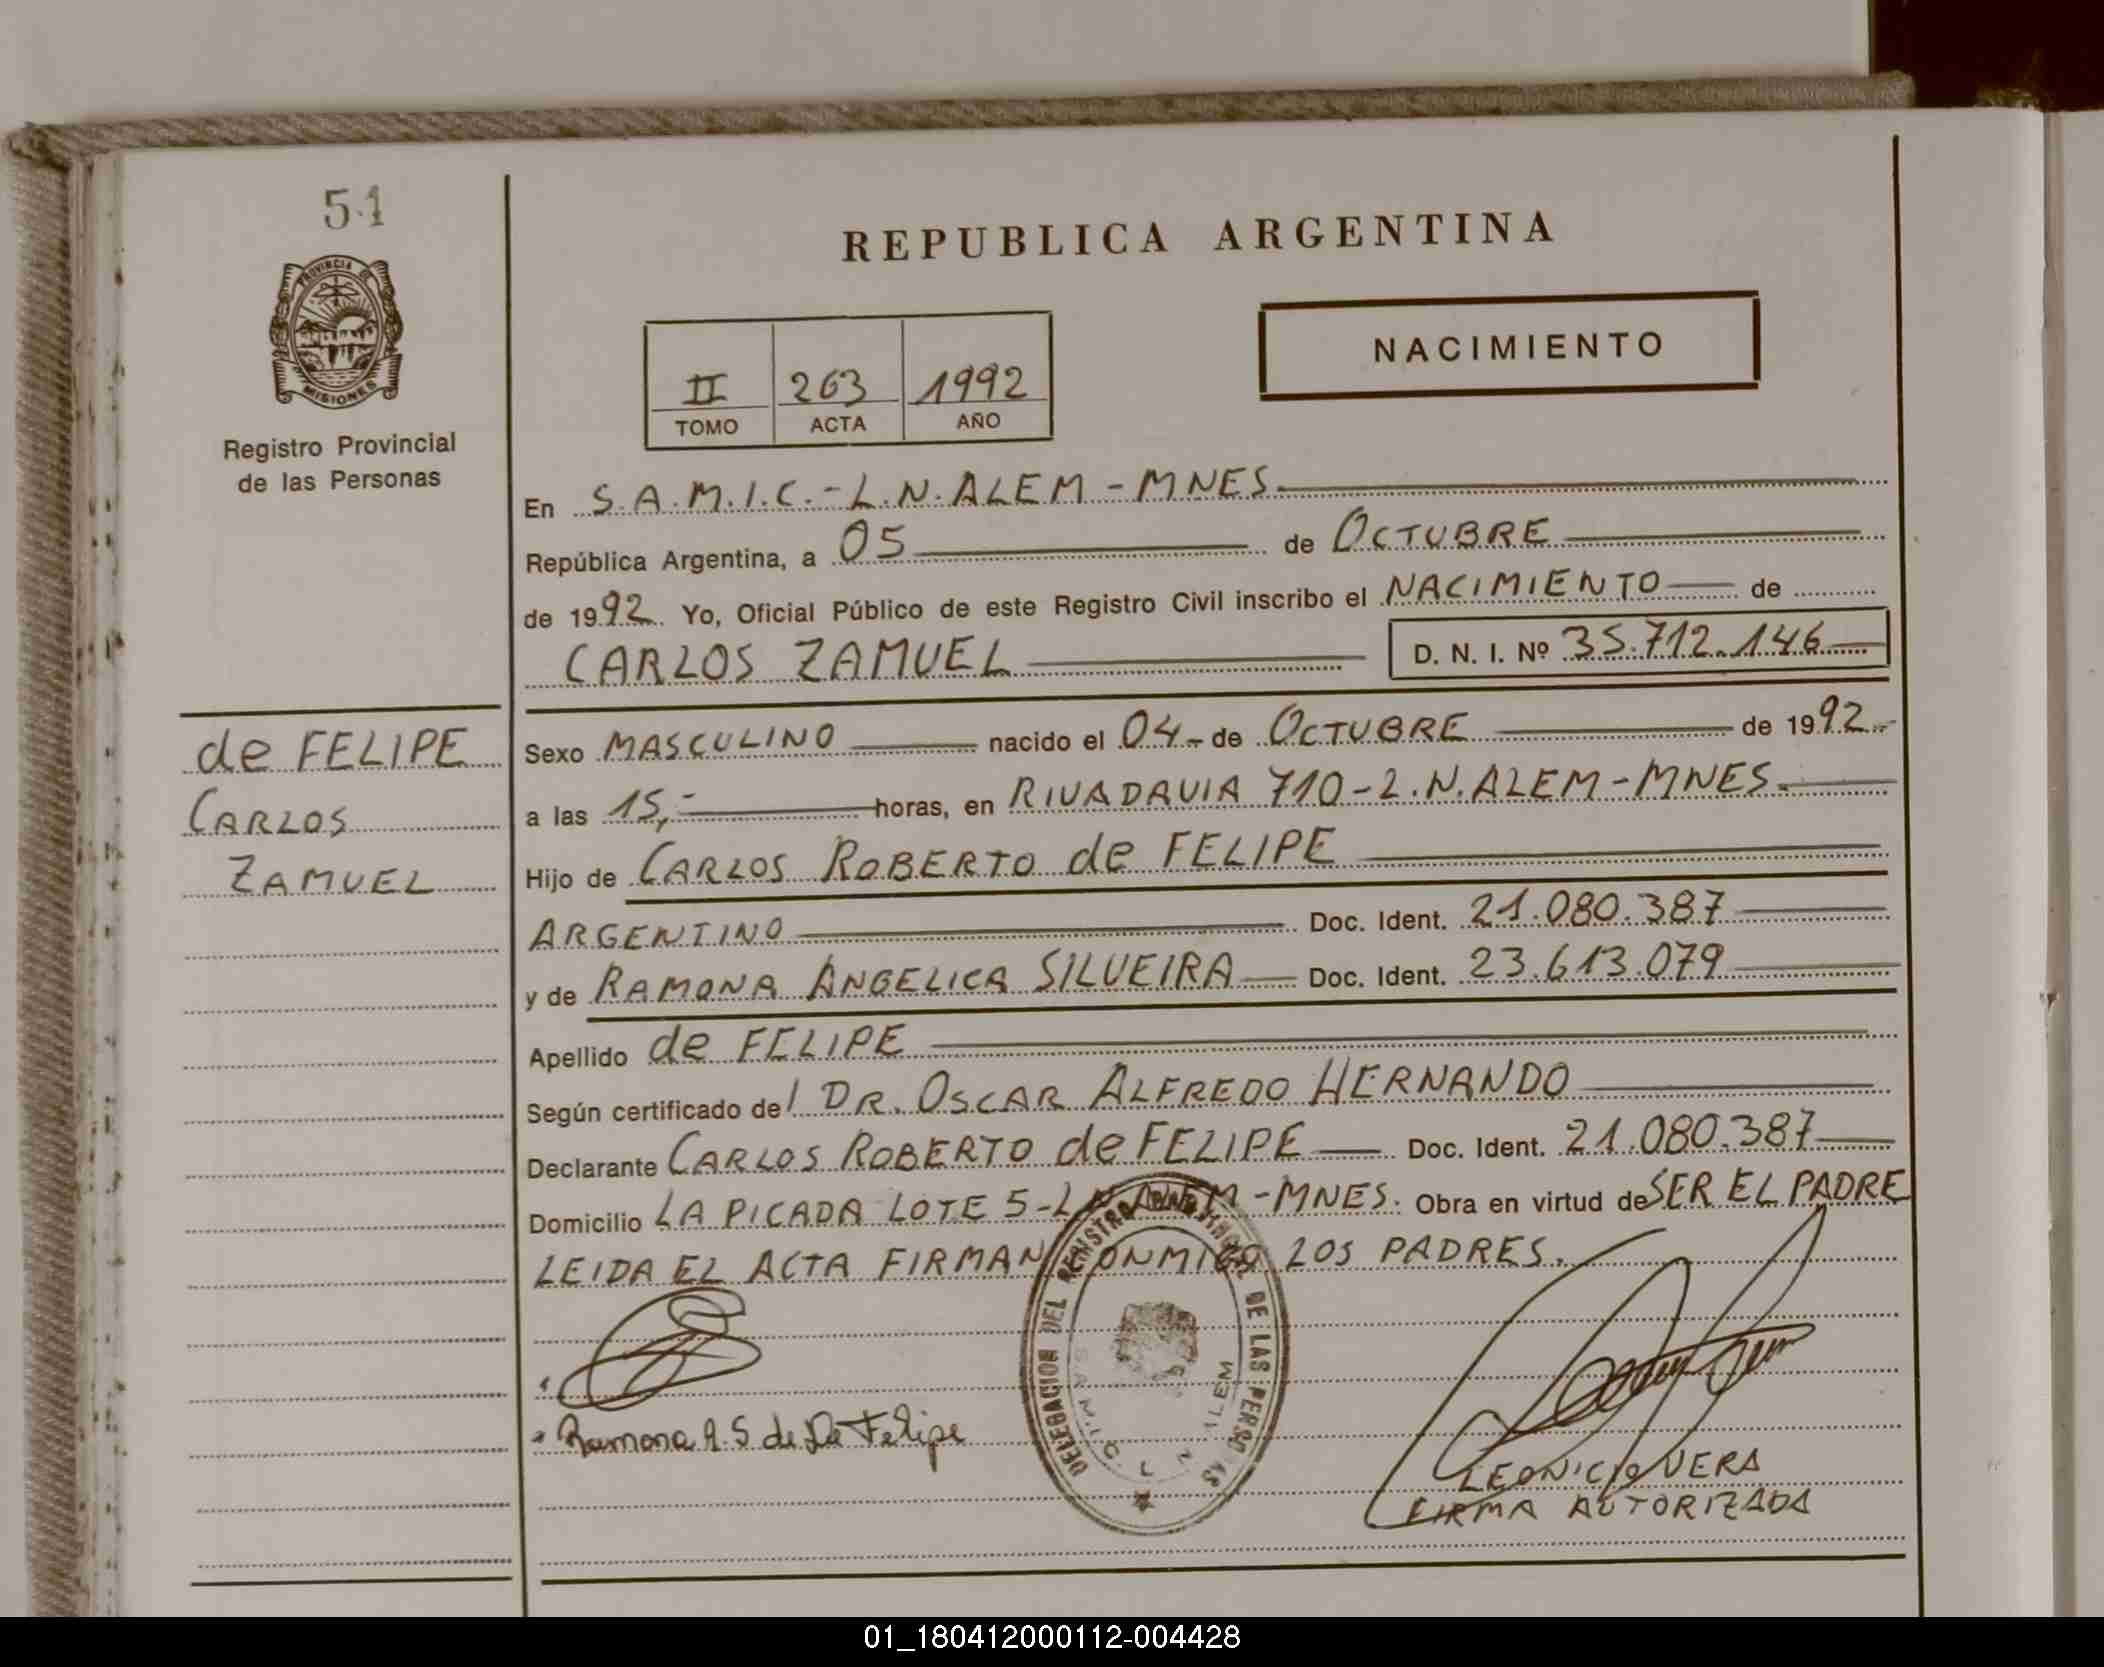 51
PROVINCIA DE
MISIONES
Registro Provincial
de las Personas
REPUBLICA ARGENTINA
NACIMIENTO
II 263 1992
TOMO ACTA AÑO
En S.A.M.I.C.-L.N.ALEM-MNES.
República Argentina, a 05 de OCTUBRE
de 1992. Yo, Oficial Público de este Registro Civil inscribo el NACIMIENTO de
CARLOS ZAMUEL D. N. I. Nº 35.712.146
de FELIPE
CARLOS
ZAMUEL
Sexo MASCULINO nacido el 04 de OCTUBRE de 1992.-
a las 15,- horas, en RIVADAVIA 710-L.N.ALEM-MNES.
Hijo de CARLOS ROBERTO de FELIPE
ARGENTINO Doc. Ident. 21.080.387
y de RAMONA ANGELICA SILVEIRA Doc. Ident. 23.613.079
Apellido de FELIPE
Según certificado del DR. OSCAR ALFREDO HERNANDO
Declarante CARLOS ROBERTO de FELIPE Doc. Ident. 21.080.387
Domicilio LA PICADA LOTE 5-L.N.ALEM-MNES. Obra en virtud de SER EL PADRE
LEIDA EL ACTA FIRMAN CONMIGO LOS PADRES.
Ramona A. S de De Felipe
DELEGACION DEL REGISTRO PROVINCIAL DE LAS PERSONAS
S.A.M.I.C. L. N. ALEM
LEONICIO VERA
FIRMA AUTORIZADA
01_180412000112-004428